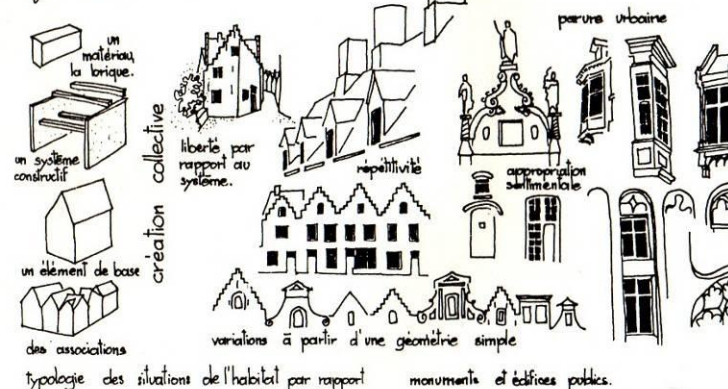 parure urbaine
un
matériau,
la brique.
un système
constructif
un élément de base
des associations
création collective
liberté par
rapport au
système.
répétitivité
appropriation
sentimentale
variations à partir d'une géométrie simple
typologie des situations de l'habitat par rapport
monuments et édifices publics.